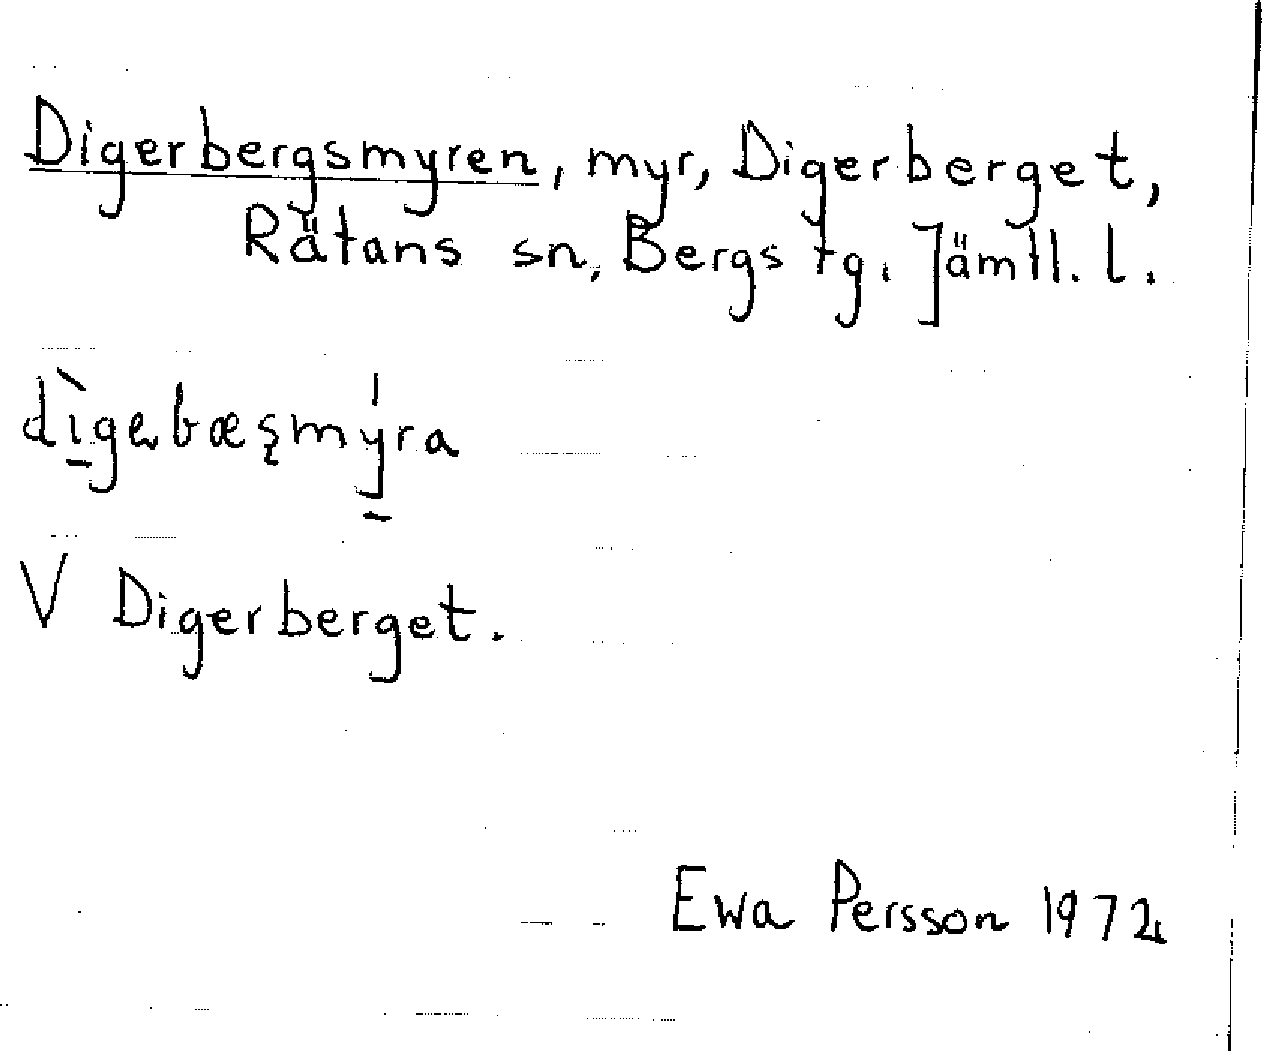 Digerbergsmyren, myr, Digerberget,
Rätans sn, Bergs tg. Jämtl. l.
dìgəbæşmýra
V Digerberget.
Ewa Persson 1972